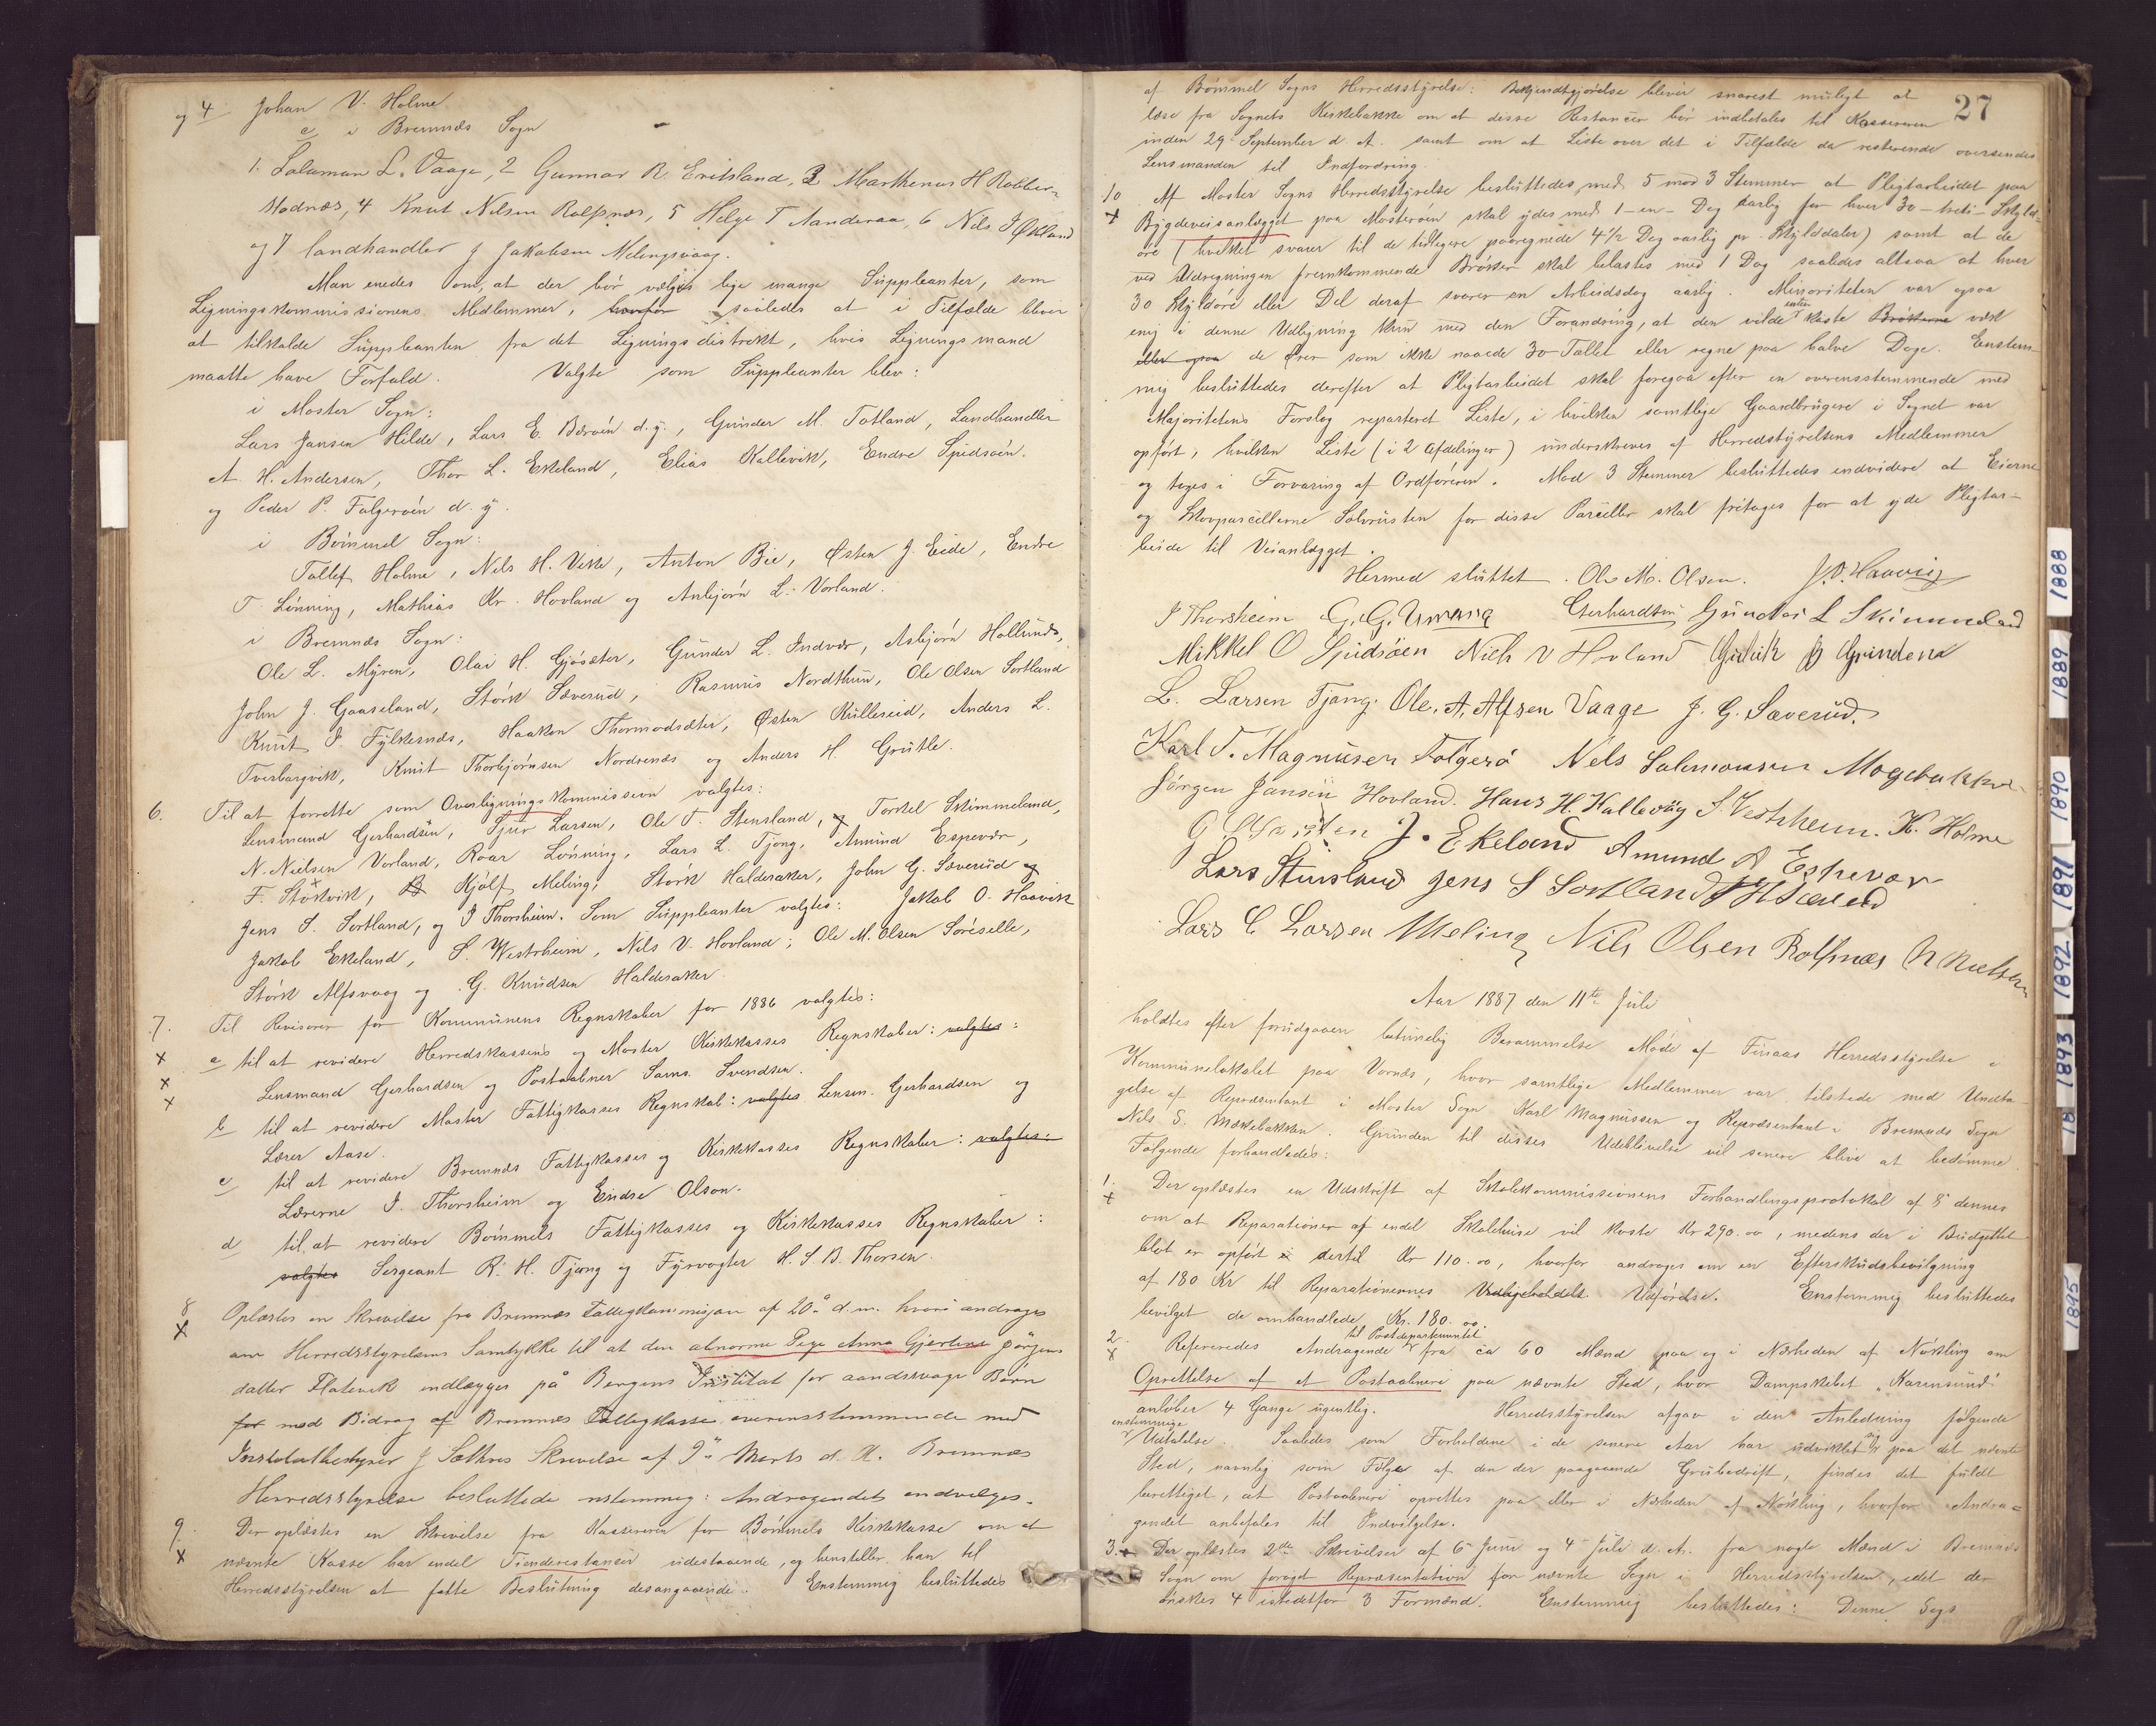 og 4. Johan V. Holme
c i Bremnæs Sogn
1. Salaman L. Vaage, 2 Gunnar R. Eritsland, 3 Marthenus H Robber-
sodnæs, 4 Knut Nilsen Rolfsnæs, 5 Helge T Aanderaa, 6 Nils J Økland
og 7 landhandler J Jakobsen Melingsvaag.
Man enedes om, at der bør vælges lige mange Suppleanter, som
Ligningskommissionens Medlemmer, saaledes at i Tilfælde bliver
at tilkalde Suppleanten fra det Ligningsdistrikt, hvis Ligningsmand
maatte have Forfald. Valgte som Suppleanter blev:
i Moster Sogn:
Lars Jansen Hilde, Lars E. Bærøen d.y., Gunder M. Totland, Landhandler
A. H. Andersen, Thor L. Ekeland, Elias Kallevik, Endre Spidsøen.
og Peder P. Folgerøen d. y.
i Bømmel Sogn:
Tollef Holme, Nils H. Vikse, Anton Bie, Østen J. Eide, Endre
T. Lønning, Mathias Kr. Hovland og Anbjørn L. Vorland.
i Bremnæs Sogn:
Ole L. Myren, Olai H. Gjøsæter, Gunder L. Indvær, Asbjørn Hollunds,
John J. Gaaseland, Størk Sæverud, Rasmus Nordthun, Ole Olsen Sortland
Knut J. Fylkesnæs, Haakon Thormodsæter, Østen Kulleseid, Anders L.
Tverborgvik, Knut Thorbjørnsen Nordsenæs og Anders H. Grutle.
6. Til at forrette som Overligningskommission valgtes:
Lensmand Gerhardsen, Sjur Larsen, Ole T. Stensland, Torkel Skimmeland,
N. Nielsen Vorland, Roar Lønning, Lars L. Tjong, Amund Espevær,
F. Stokvik, Kjølf Meling, Størk Halderaker, John G. Sæverud og
Jens S. Sortland, og J Thorsheim. Som Suppleanter valgtes: Jakob O. Haavik
Jakob Ekeland, S. Westrheim, Nils V. Hovland, Ole M. Olsen Søreselle,
Størk Alfsvaag og G. Knudsen Halderaker.
7. Til Revisorer for Kommunens Regnskaber for 1886 valgtes:
x a til at revidere Herredskassens og Moster Kirkekasses Regnskaber: valgtes:
x Lensmand Gerhardsen og Postaabner Sams. Svendsen.
x b til at revidere Moster Fattigkasses Regnskab: valgtes Lensm. Gerhardsen og
Lærer Aase.
c til at revidere Bremnæs Fattigkasses og Kirkekasses Regnskaber: valgtes:
Lærerne J. Thorsheim og Endre Olson.
d til at revidere Bømmels Fattigkasses og Kirkekasses Regnskaber:
valgtes Sergeant R. H. Tjong og Fyrvogter H. S. B. Thorsen.
8. Oplæstes en Skrivelse fra Bremnæs Fattigkommisjon af 20de d.m. hvori andrages
x om Herredsstyrelsens Samtykke til at den abnorme Pige Anna Gjertine Jörgens
datter Flatevik indlægges på Bergens Institut for aandssvage Börn
for mod Bidrag af Bremnæs Fattigkasse overensstemmende med
Institutbestyrer J Sæthres Skrivelse af 9de Marts d. A. Bremnæs
Herredsstyrelse besluttede enstemmig: Andragendet indvilges.
9. Der oplæstes en Skrivelse fra Kassereren for Bømmels Kirkekasse om at
x nævnte Kasse har endel Tienderestancer udestaaende, og henstiller han til
Herredsstyrelsen at fatte Beslutning desangaaende. Enstemmig besluttedes
27
af Bømmel Sogns Herredsstyrelse: Bekjendtgjørelse bliver snarest muligt at
læse fra Sognets Kirkebakke om at desse Restancer bør indbetales til Kassereren
inden 29 September d. A. samt om at Liste over det i Tilfælde da resterende oversendes
Lensmanden til Indfordring.
10 Af Moster Sogns Herredsstyrelse besluttedes med 5 mod 3 Stemmer at Pligtarbeidet paa
x Bygdeveisanlægget paa Mosterøen skal ydes med 1 -en- Dag aarlig for hver 30 -treti- Skyld-
øre (hvilket svarer til de tidligere paaregnede 4½ Dag aarlig pr Skylddaler) samt at de
ved Udregningen fremkommende Brøker skal belastes med 1 Dag saaledes altsaa at hver
30 Skyldøre eller Del deraf svarer en Arbeidsdag aarlig. Minoriteten var ogsaa
enig i denne Udligning kun med den Forandring, at den vilde enten kaste Brøkerne væk
eller ogsaa de Ører som ikke naaede 30-Tallet eller regne paa halve Dage. Enstem-
mig besluttedes derefter at Pligtarbeidet skal foregaa efter en overensstemmende med
Majoritetens Forslag reparteret Liste, i hvilken samtlige Gaardbrugere i Sognet var
opført, hvilken Liste (i 2 Afdelinger) underskrives af Herredstyrelsens Medlemmer
og tages i Forvaring af Ordføreren. Mod 3 Stemmer besluttedes endvidere at Eierne
og Skovparcellerne Solvrusten for disse Parceller skal fritages for at yde Pligtar-
beide til Veianlægget.
Hermed sluttet. Ole M. Olsen. J. O. Haavig
J Thorsheim G. G. Urvang Gerhardsen Gunder L Skimmeland
Mikkel O Spidsöen Niels V Hovland Gj Grindem
L. Larsen Tjong. Ole. A. Alfsen Vaage J. G. Sæverud.
Karl T. Magnusen Folgerö Nels Salmonsen Mogebakken
Jörgen Jansen Hovland. Hans H. Hallevåg S. Vestrheim. K. Holme
J. Ekeland Amund A Espevær
Lars Stensland Jens S Sortland J H Sæverud
Lars C Larsen Meling Nils Olsen Rolfsnæs N Nielsen
Aar 1887 den 11te Juli
holdtes efter forudgaaen betimelig Berammelse Møde af Finaas Herredsstyrelse i
Kommunelokalet paa Vornæs, hvor samtlige Medlemmer var tilstede med Undta-
gelse af Repræsentant i Moster Sogn Karl Magnussen og Repræsentant i Bremnæs Sogn
Nils S. Møkebakken. Grunden til disses Udeblivelse vil senere blive at bedømme.
Følgende forhandledes:
1. Der oplæstes en Udskrift af Skolekommissionens Forhandlingsprotokol af 8 dennes
x om at Reparationer af endel Skolehuse vil koste Kr 290.00, medens der i Budgettet
blot er opført dertil Kr 110.00, hvorfor andrages om en Efterskudsbevilgning
af 180 Kr til Reparationernes Vedligeholdelse Udførelse. Enstemmig besluttedes
bevilget de omhandlede Kr. 180.00.
2. Refereredes Andragende til Postdepartementet fra ca 60 Mænd paa og i Nærheden af Nøkling om
x Oprettelse af et Postaabneri paa nævnte Sted, hvor Dampskibet „Karmsund"
anløber 4 Gange ugentlig. Herredsstyrelsen afgav i den Anledning følgende
enstemmige Udtalelse. Saaledes som Forholdene i de senere Aar har udviklet sig paa det nævnte
Sted, navnlig som Følge af den der paagaaende Grubedrift, findes det fuldt
berettiget, at Postaabneri oprettes paa eller i Nærheden af Nøkling, hvorfor Andra-
gendet anbefales til Indvilgelse.
3. x Der oplæstes 2de Skrivelser af 6 Juni og 4 Juli d. A. fra nogle Mænd i Bremnæs
Sogn om forøget Repræsentation for nævnte Sogn i Herredsstyrelsen, idet der
ønskes 4 istedetfor 3 Formænd. Enstemmig besluttedes: Denne Sags
1888
1889
1890
1891
1892
1893
18
1895